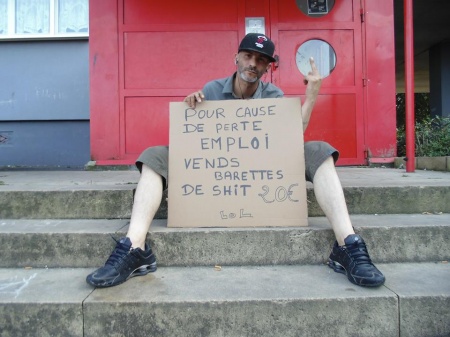 POUR CAUSE
DE PERTE
EMPLOI
VENDS
BARETTES
DE SHIT 20€
LOL